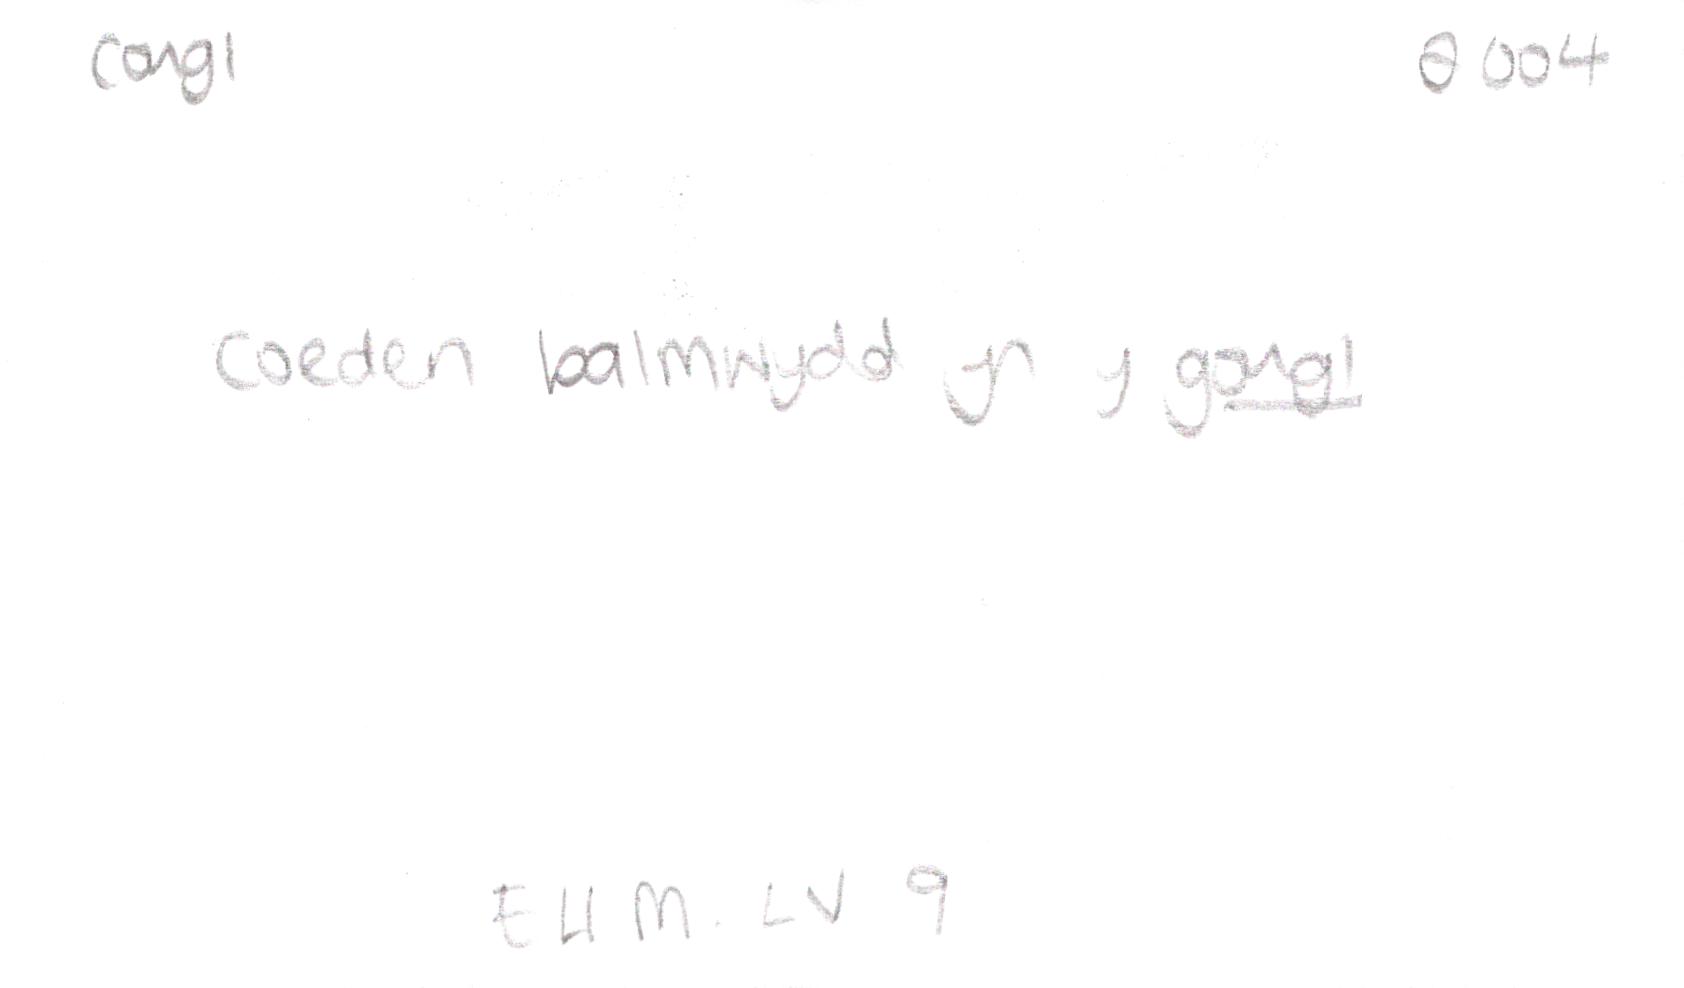 congl 2004
coeden balmwydd yn y gongl
LV 9